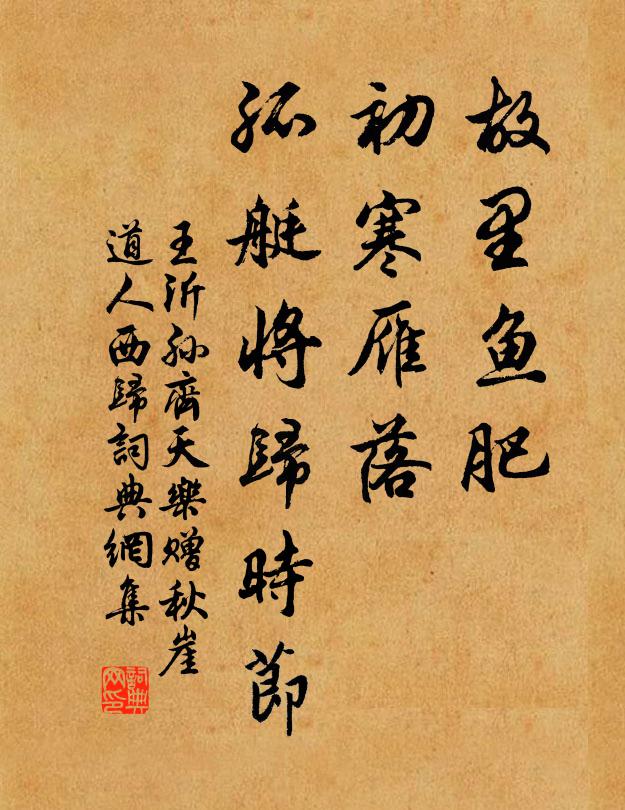 故里鱼肥
初寒雁落
孤艇将歸時節
王沂孙齊天樂赠秋崖
道人西歸詞典網集
詞典网印